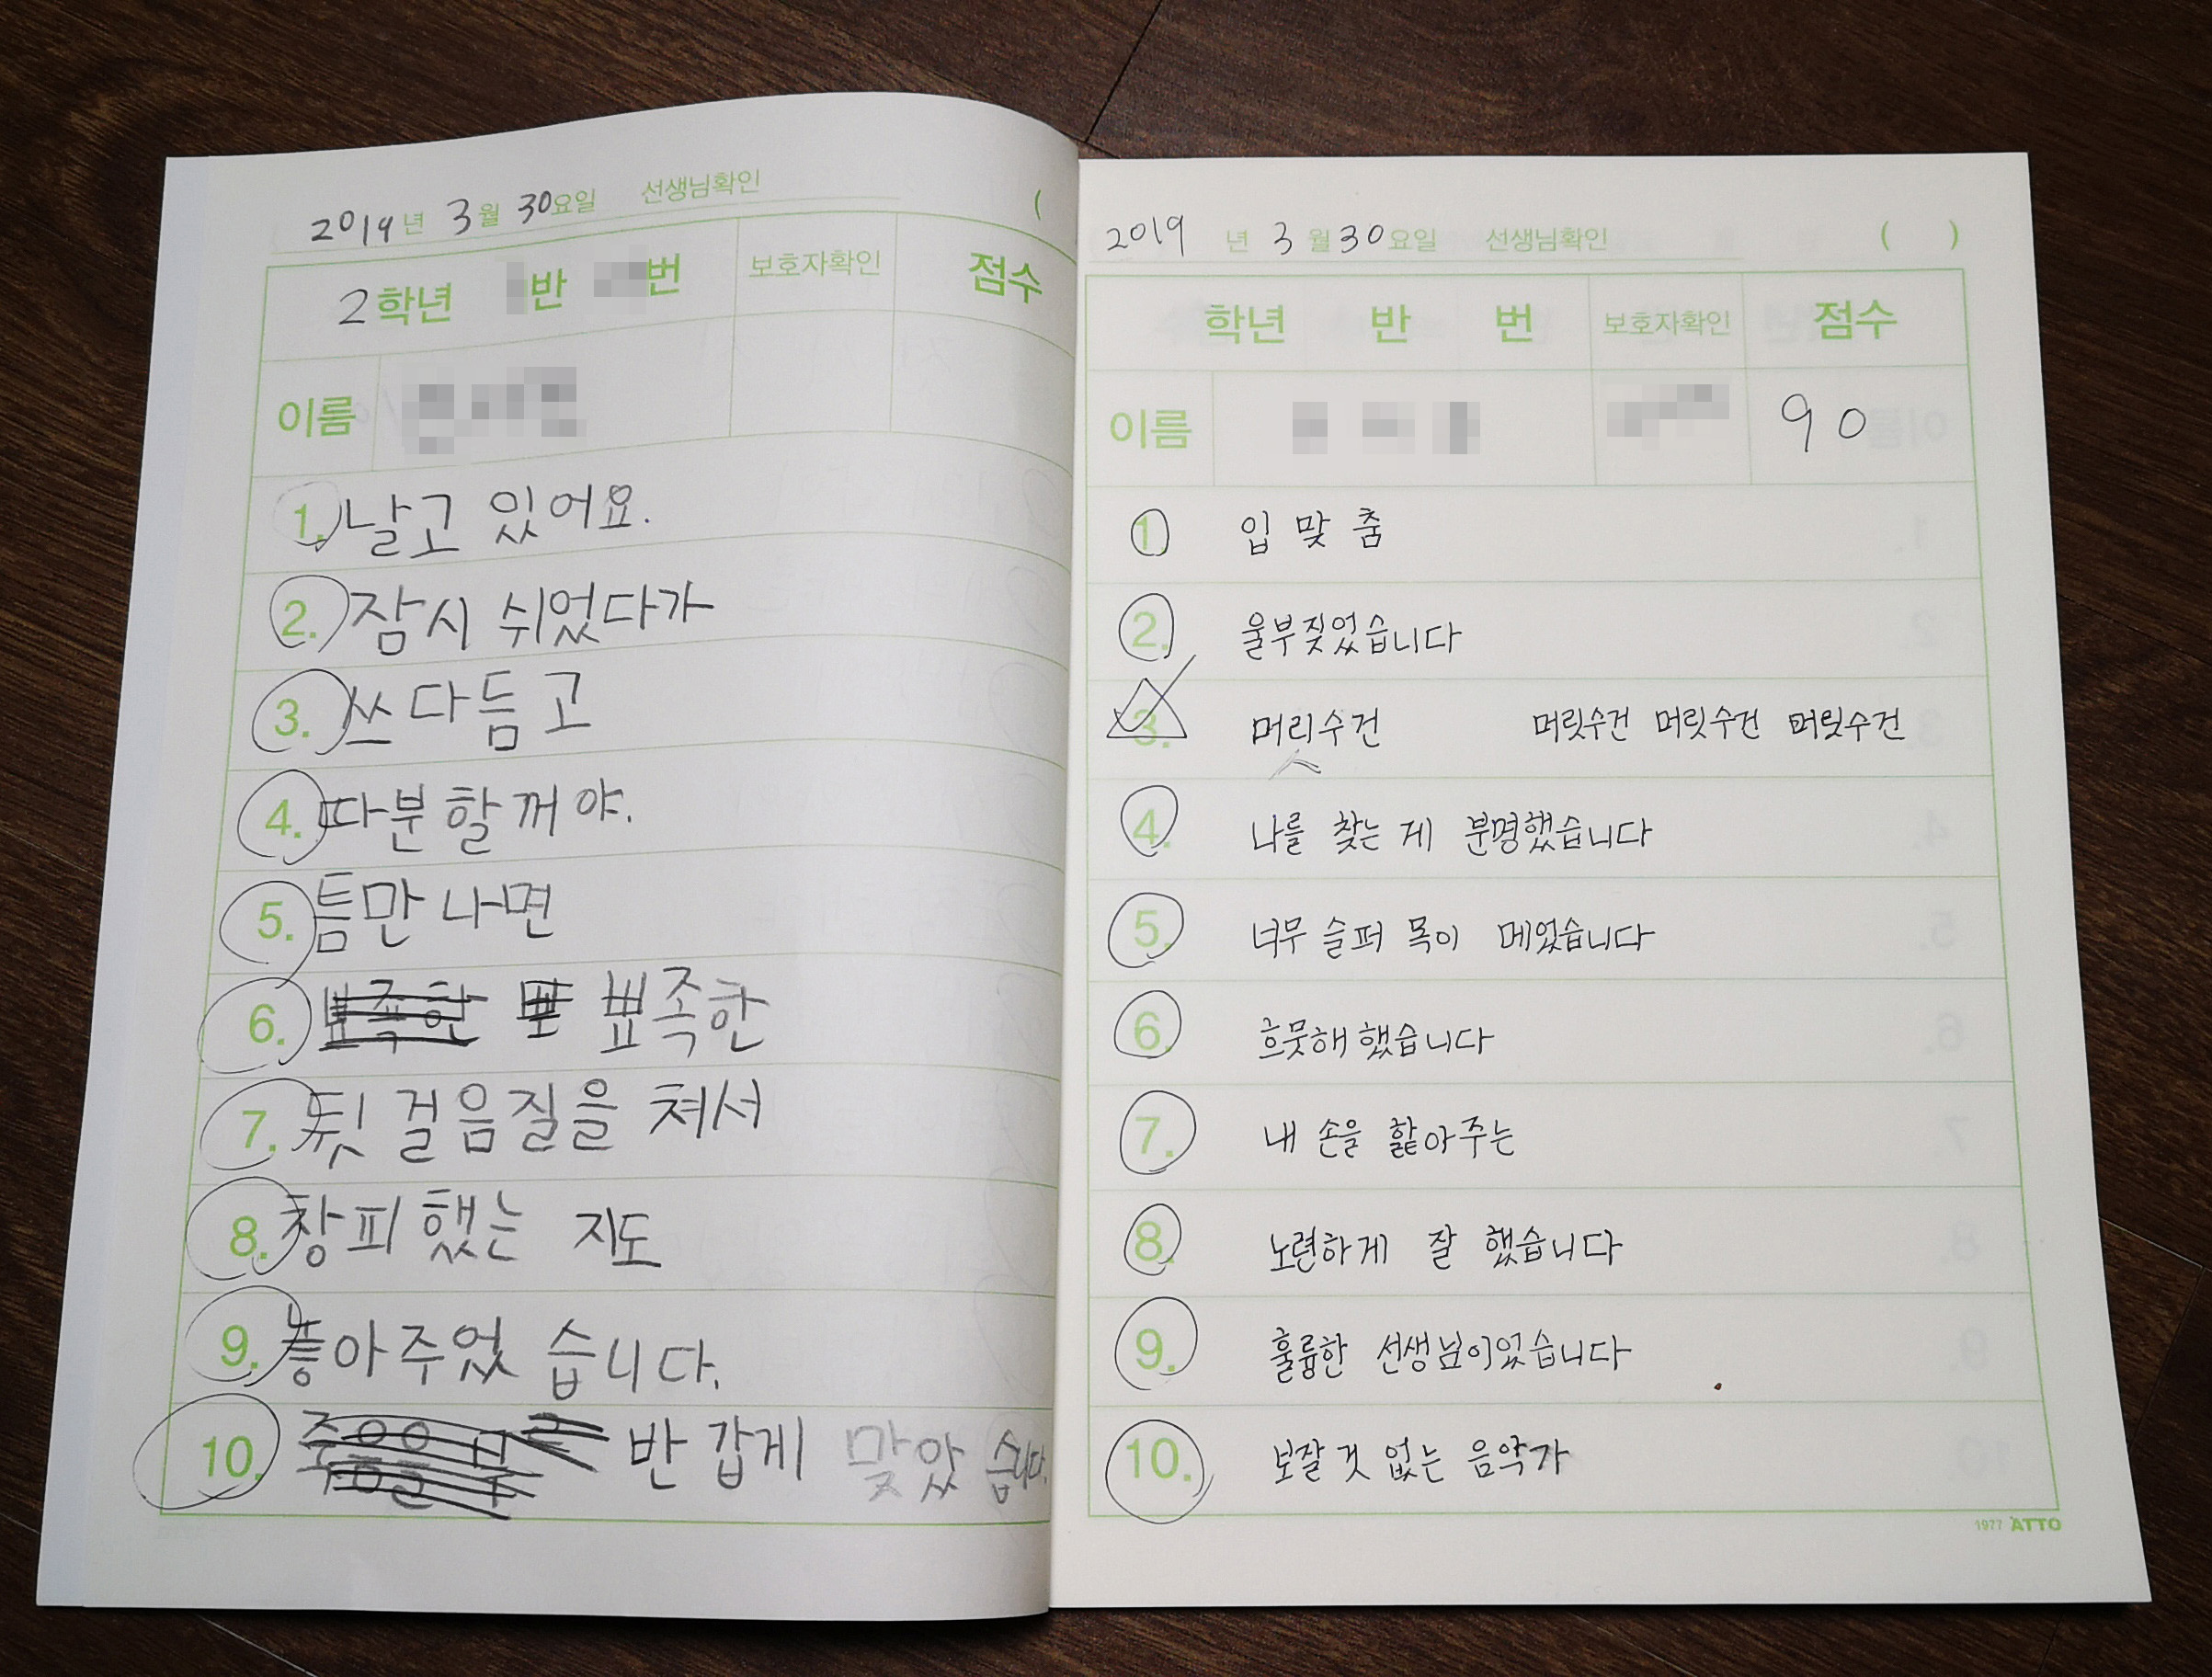 2019년 3월 30요일 선생님확인 (
2학년 반 번 보호자확인 점수
이름
1. 날고 있어요.
2. 잠시 쉬었다가
3. 쓰다듬고
4. 따분할꺼야.
5. 틈만나면
6. 뾰족한
7. 뒷걸음질을 쳐서
8. 창피했는 지도
9. 놓아주었습니다.
10. 반갑게 맞았습니다.
2019년 3월 30요일 선생님확인 ( )
학년 반 번 보호자확인 점수
이름 90
1. 입맞춤
2. 울부짖었습니다
3. 머리수건 머릿수건 머릿수건 머릿수건
4. 나를 찾는 게 분명했습니다
5. 너무 슬퍼 목이 메었습니다
6. 흐뭇해 했습니다
7. 내 손을 핥아주는
8. 노련하게 잘 했습니다
9. 훌륭한 선생님이었습니다
10. 보잘 것 없는 음악가
1977 ATTO